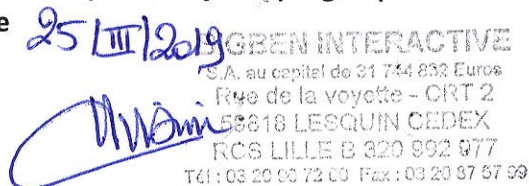 e 25/III/2019
BIGBEN INTERACTIVE
S.A. au capital de 31 744 832 Euros
Rue de la voyette - CRT 2
59818 LESQUIN CEDEX
RCS LILLE B 320 992 977
Tél : 03 20 90 72 00 Fax : 03 20 87 57 99